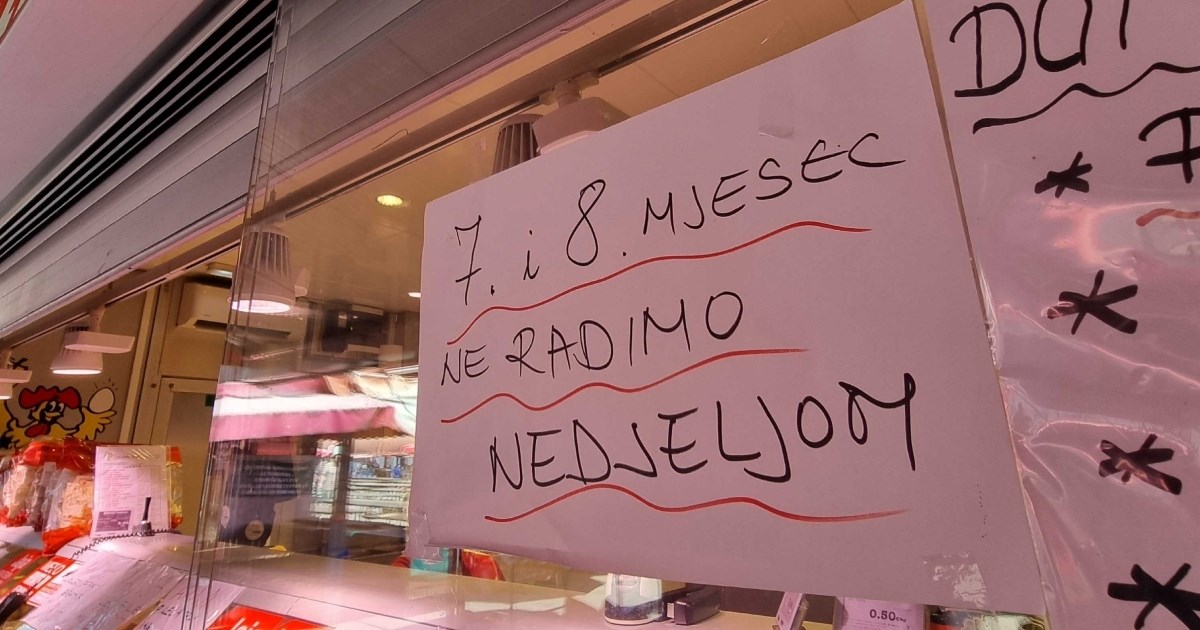 7. i 8. MJESEC
NE RADIMO
NEDJELJOM
0.50